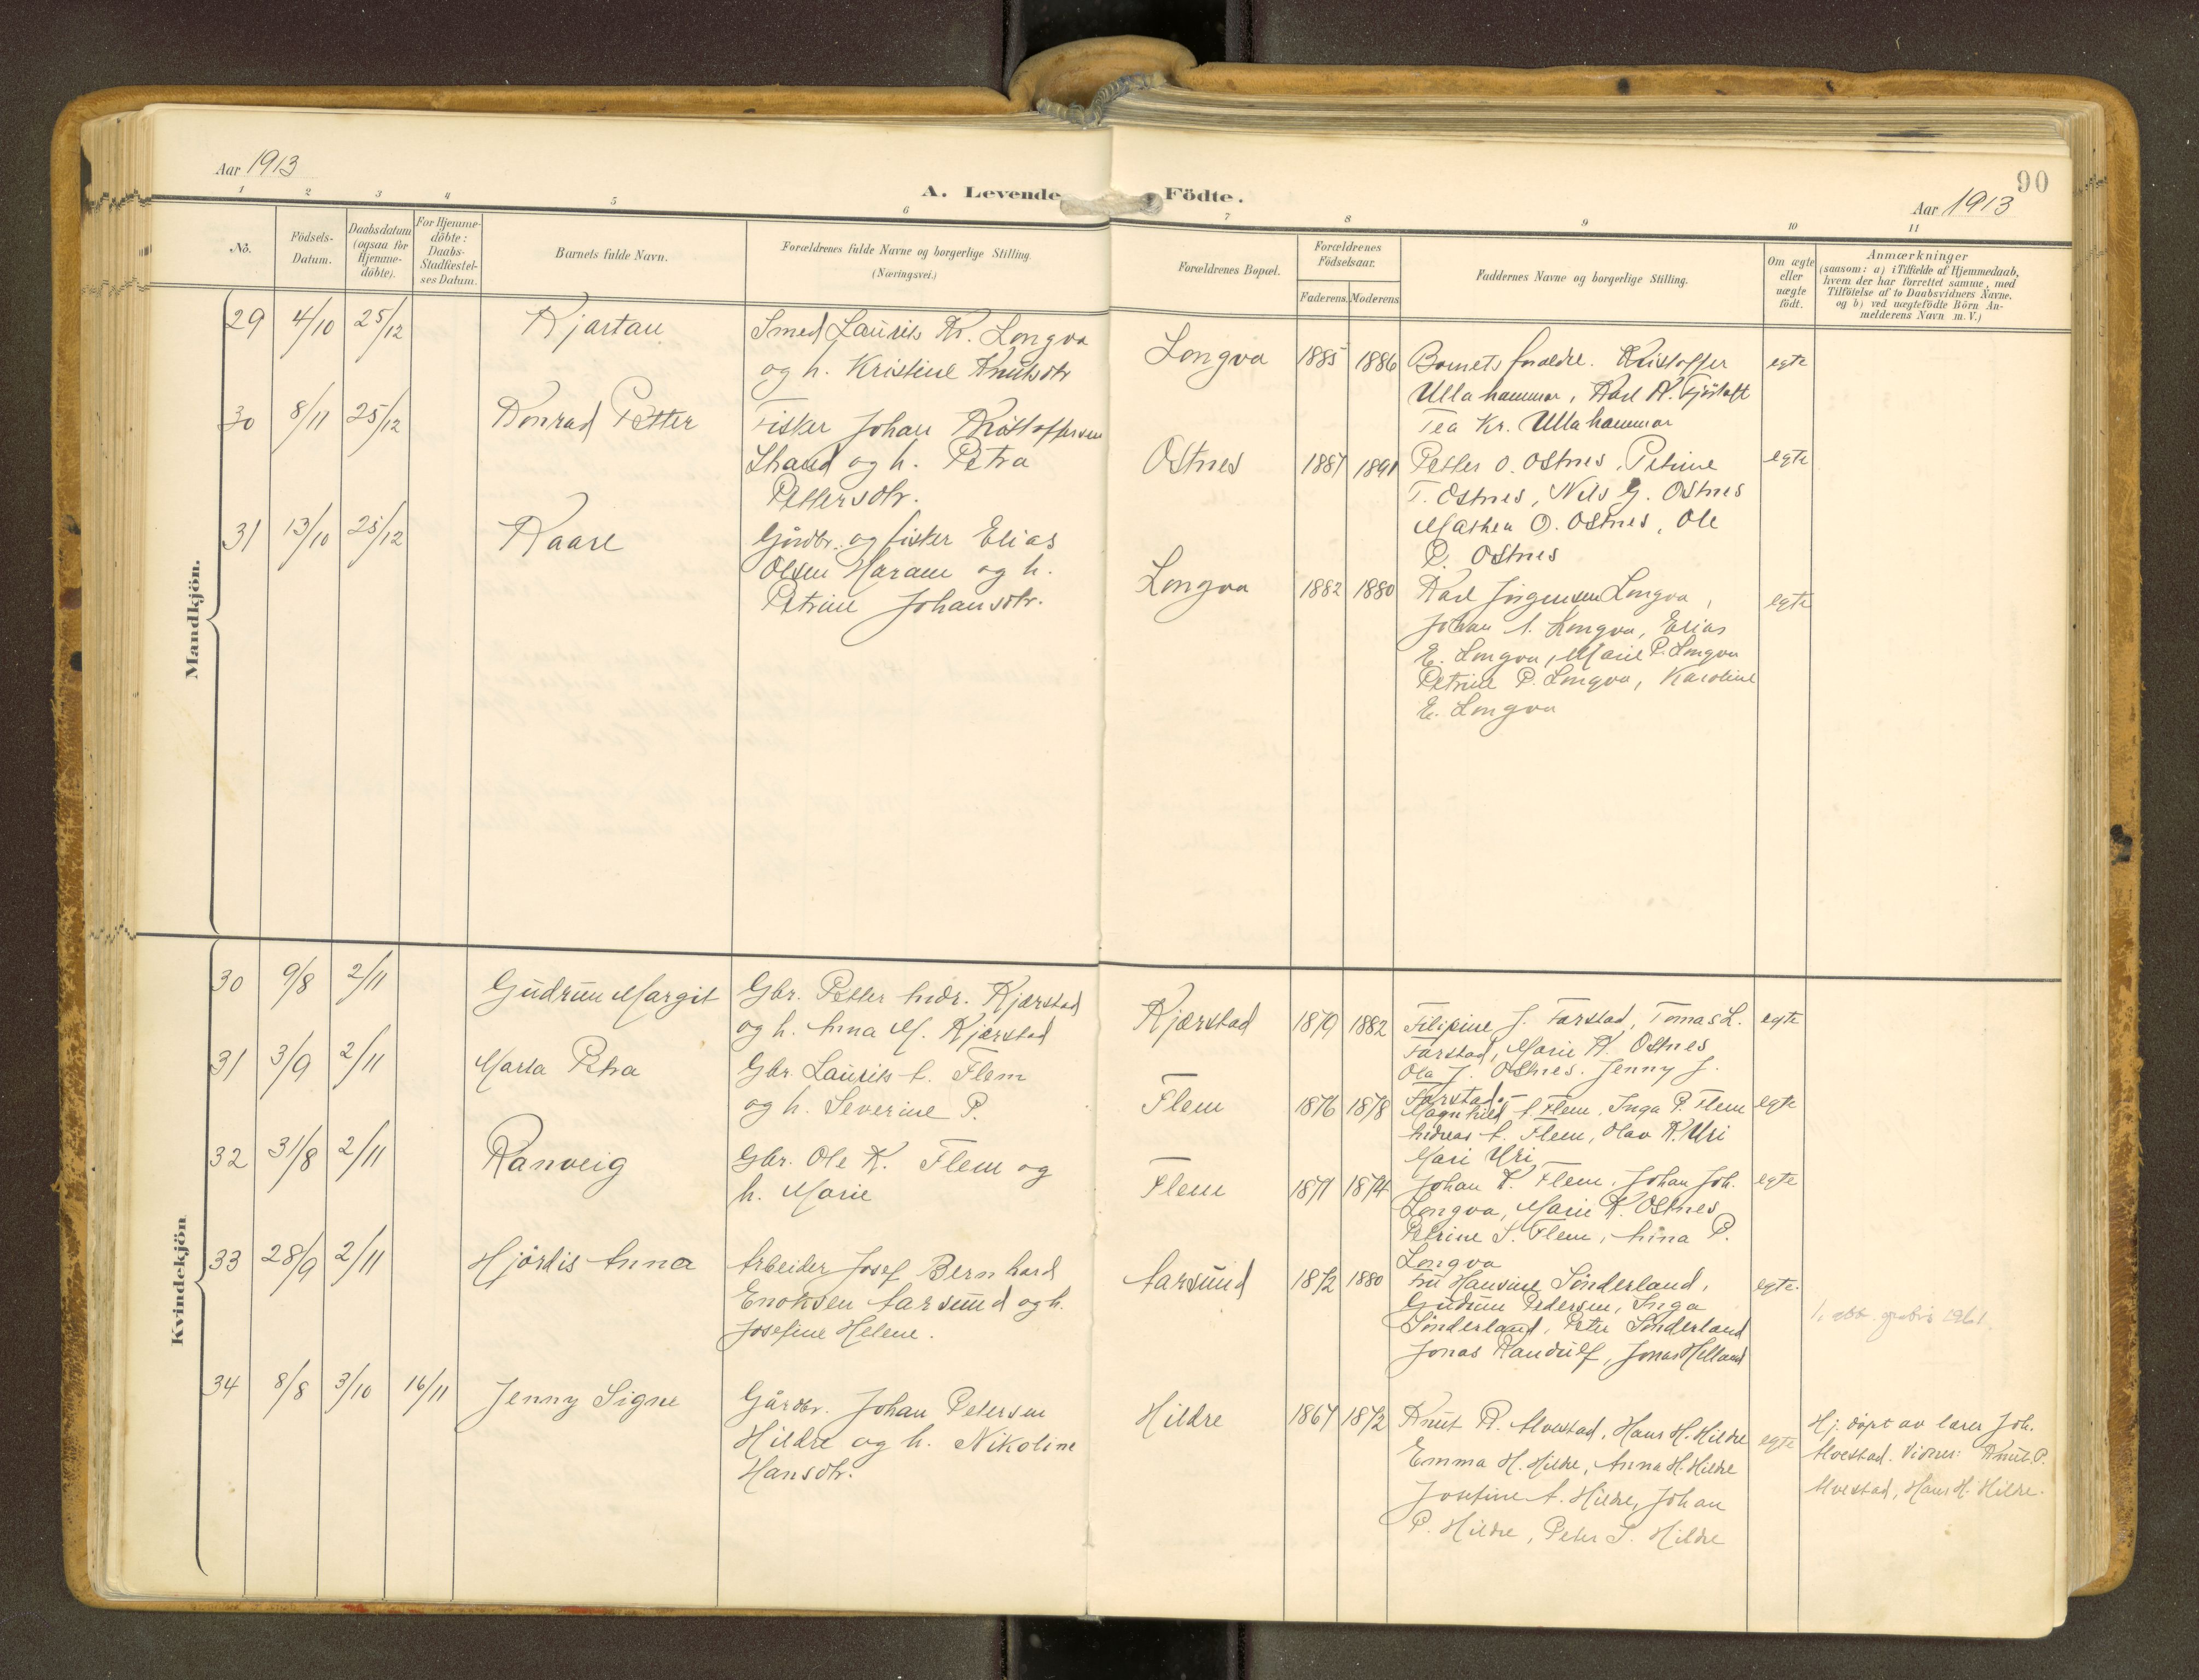 Aar 1913
A. Levende Födte.
90
Aar 1913
1 2 3 4 5 6 7 8 9 10 11
No.
Födsels-
Datum.
Daabsdatum
(ogsaa for
Hjemme-
döbte).
For Hjemme-
döbte:
Daabs-
Stadfæstel-
ses Datum.
Barnets fulde Navn.
Forældrenes fulde Navne og borgerlige Stilling.
(Næringsvei.)
Forældrenes Bopæl.
Forældrenes
Födselsaar.
Faderens. Moderens
Faddernes Navne og borgerlige Stilling.
Om ægte
eller
uægte
födt.
Anmærkninger
(saasom: a) i Tilfælde af Hjemmedaab,
hvem der har forrettet samme, med
Tilföielse af to Daabsvidners Navne.
og b) ved uægtefödte Börn An-
melderens Navn m. V.)
Mandkjön.
29 4/10 25/12 Kjartan
Smed Lauris Kr. Longva
og h. Kristine Knutsdtr
Longva 1885 1886
Barnets forældre. Kristoffer
Ullahammar, Karl K. Fjörtoft
Tea Kr. Ullahammar
egte
30 8/11 25/12 Konrad Petter
Fisker Johan Kristoffersen
Strand og h. Petra
Pettersdtr.
Ostnes 1887 1891
Petter O. Ostnes, Petrine
T. Ostnes, Nils G. Ostnes
Mathea O. Ostnes, Ole
P. Ostnes
egte
31 13/10 25/12 Kaare
Gårdbr. og fisker Elias
Olsen Haram og h.
Petrine Johansdtr.
Longva 1882 1880
Karl Jörgensen Longva,
Johan A. Longva, Elias
E. Longva, Marie P. Longva
Petrine P. Longva, Karoline
E. Longva
egte
Kvindekjön
30 9/8 2/11 Gudrun Margit
Gbr. Petter Andr. Kjærstad
og h. Anna M. Kjærstad
Kjærstad 1879 1882
Filipine J. Farstad, Tomas L.
Farstad, Marie K. Ostnes
Ola J. Ostnes. Jenny J.
Farstad.-
egte
31 3/9 2/11 Marta Petra
Gbr. Laurits A. Flem
og h. Severine P.
Flem 1876 1878
Magnhild A. Flem, Inga P. Flem
Andreas A. Flem, Olav K. Uri
Mari Uri
egte
32 31/8 2/11 Ranveig
Gbr. Ole K. Flem og
h. Marie
Flem 1871 1874
Johan K. Flem, Johan Joh.
Longva, Marie K. Ostnes
Petrine S. Flem, Anna P.
Longva
egte
33 28/9 2/11 Hjördis Anna
Arbeider Josef Bernhard
Enoksen Aarsund og h.
Josefine Helene.
Aarsund 1872 1880
Fru Hansine Sönderland,
Gudrun Pedersen, Inga
Sönderland, Peter Sönderland
Jonas Randulf, Jonas Helland
egte.
1961
34 8/8 3/10 16/11 Jenny Signe
Gårdbr. Johan Petersen
Hildre og h. Nikoline
Hansdtr.
Hildre 1867 1872
Knut P. Alvestad, Hans H. Hildre
Emma H. Hildre, Anna H. Hildre
Josefine A. Hildre, Johan
P. Hildre, Peter S. Hildre
egte
Hj. döpt av lærer Joh.
Alvestad. Vidner: Knut P.
Alvestad, Hans H. Hildre.